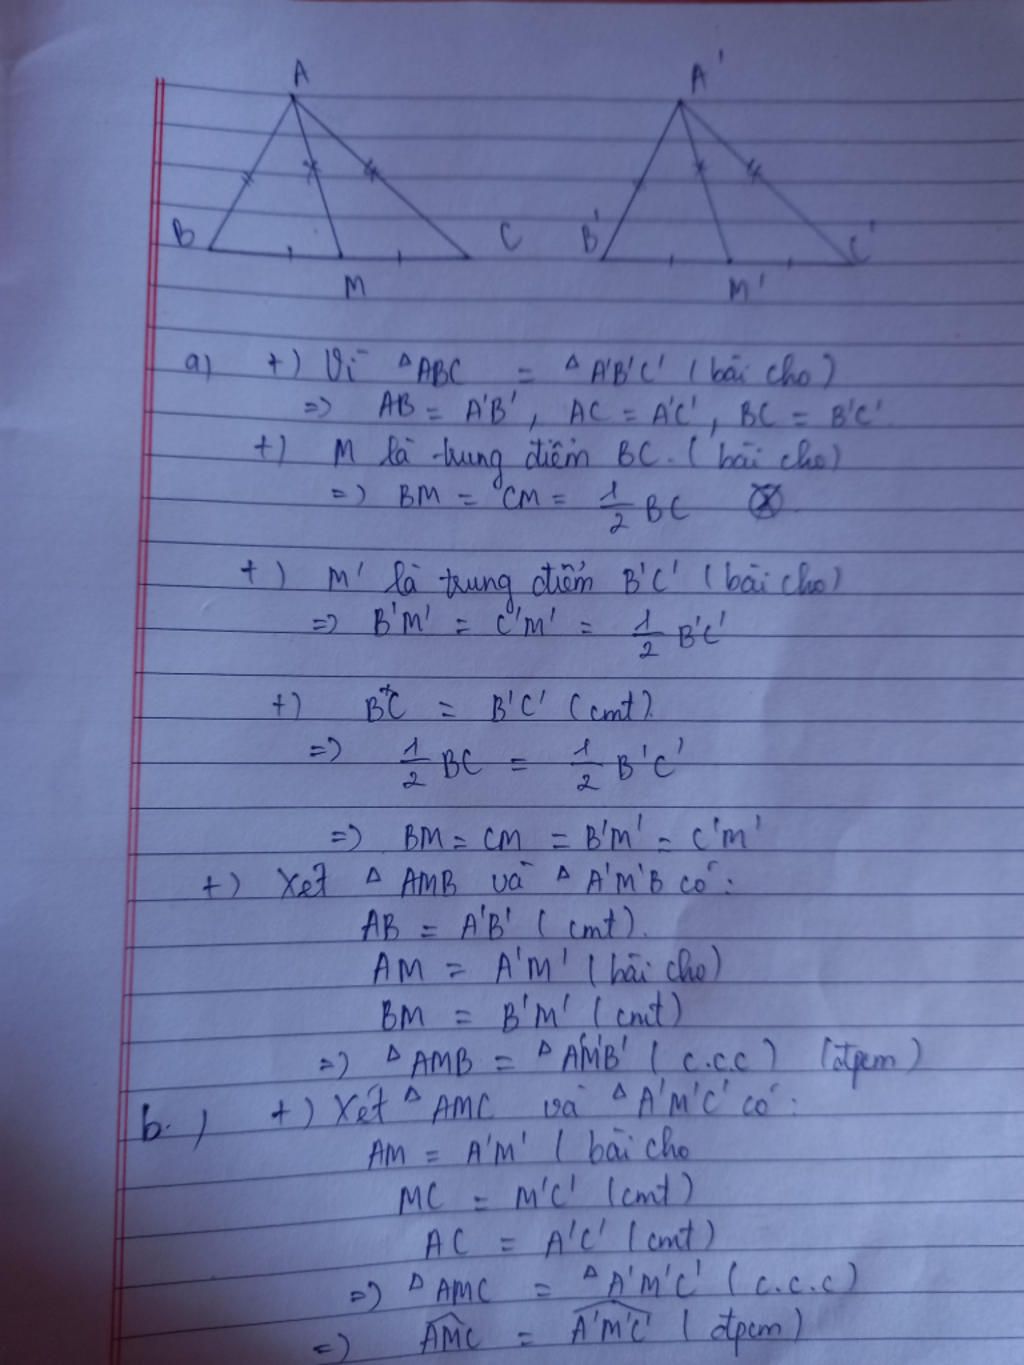 A A'
B C B' C'
M M'
a) +) Vì △ABC = △A'B'C' (bài cho)
=> AB = A'B', AC = A'C', BC = B'C'.
+) M là trung điểm BC. (bài cho)
=> BM = CM = 1/2 BC
+) M' là trung điểm B'C' (bài cho)
=> B'M' = C'M' = 1/2 B'C'
+) BC = B'C' (cmt).
=> 1/2 BC = 1/2 B'C'
=> BM = CM = B'M' = C'M'
+) Xét △ AMB và △ A'M'B có:
AB = A'B' (cmt).
AM = A'M' (bài cho)
BM = B'M' (cmt)
=> △AMB = △A'M'B' (c.c.c) (đpcm)
b.) +) Xét △AMC và △A'M'C' có:
AM = A'M' (bài cho
MC = M'C' (cmt)
AC = A'C' (cmt)
=> △AMC = △A'M'C' (c.c.c)
=> AMC = A'M'C' (đpcm)